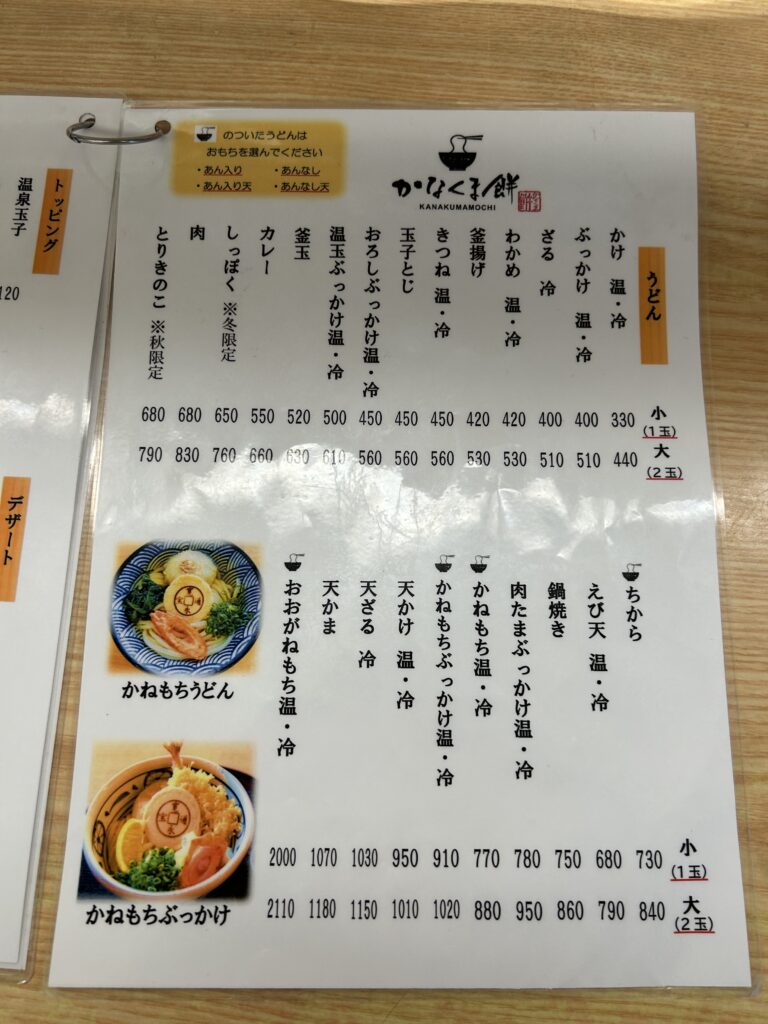 のついたうどんは
おもちを選んでください
・あん入り ・あんなし
・あん入り天 ・あんなし天
かなくま餅
KANAKUMAMOCHI
うどん
小
(1玉)
大
(2玉)
かけ 温・冷 330 440
ぶっかけ 温・冷 400 510
ざる 冷 400 510
わかめ 温・冷 420 530
釜揚げ 420 530
きつね 温・冷 450 560
玉子とじ 450 560
おろしぶっかけ温・冷 450 560
温玉ぶっかけ温・冷 500 610
釜玉 520 630
カレー 550 660
しっぽく ※冬限定 650 760
肉 680 830
とりきのこ ※秋限定 680 790
小
(1玉)
大
(2玉)
ちから 730 840
えび天 温・冷 680 790
鍋焼き 750 860
肉たまぶっかけ温・冷 780 950
かねもち温・冷 770 880
かねもちぶっかけ温・冷 910 1020
天かけ 温・冷 950 1010
天ざる 冷 1030 1150
天かま 1070 1180
おおがねもち温・冷 2000 2110
かねもちうどん
かねもちぶっかけ
トッピング
温泉玉子
120
デザート